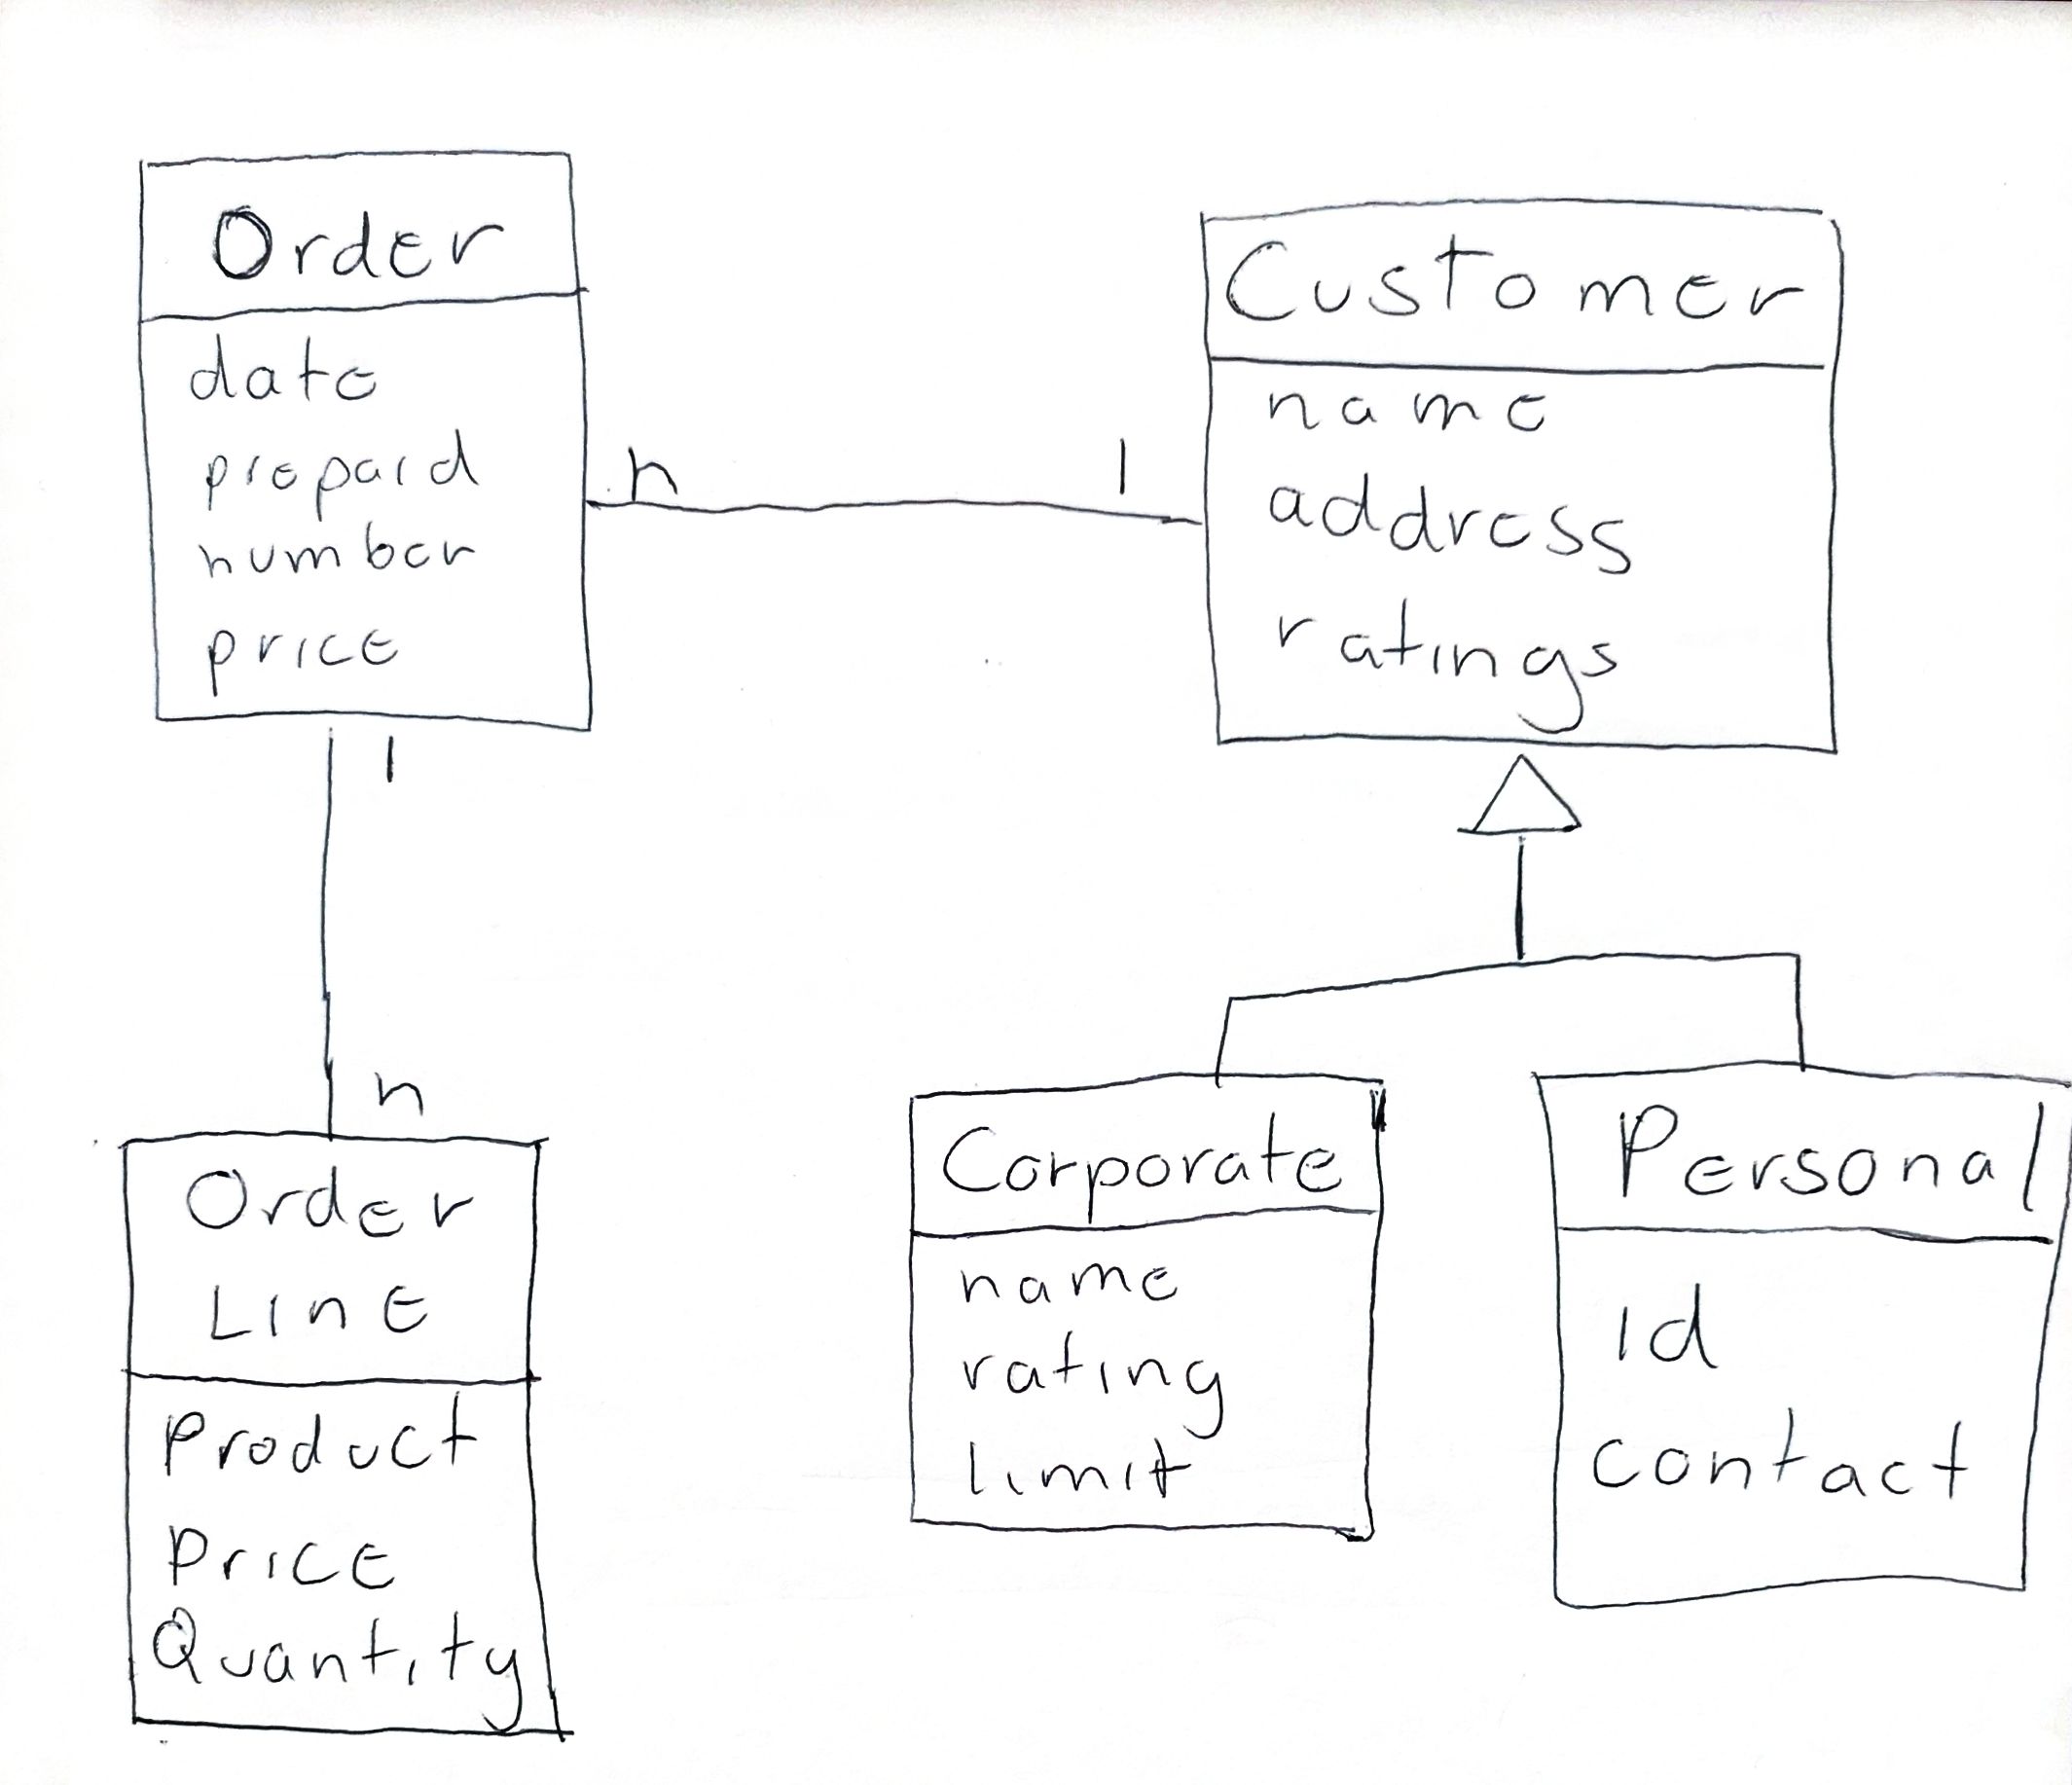 Order
date
prepaid
number
price
n
1
Customer
name
address
ratings
1
n
Order
Line
Product
Price
Quantity
Corporate
name
rating
limit
Personal
id
contact